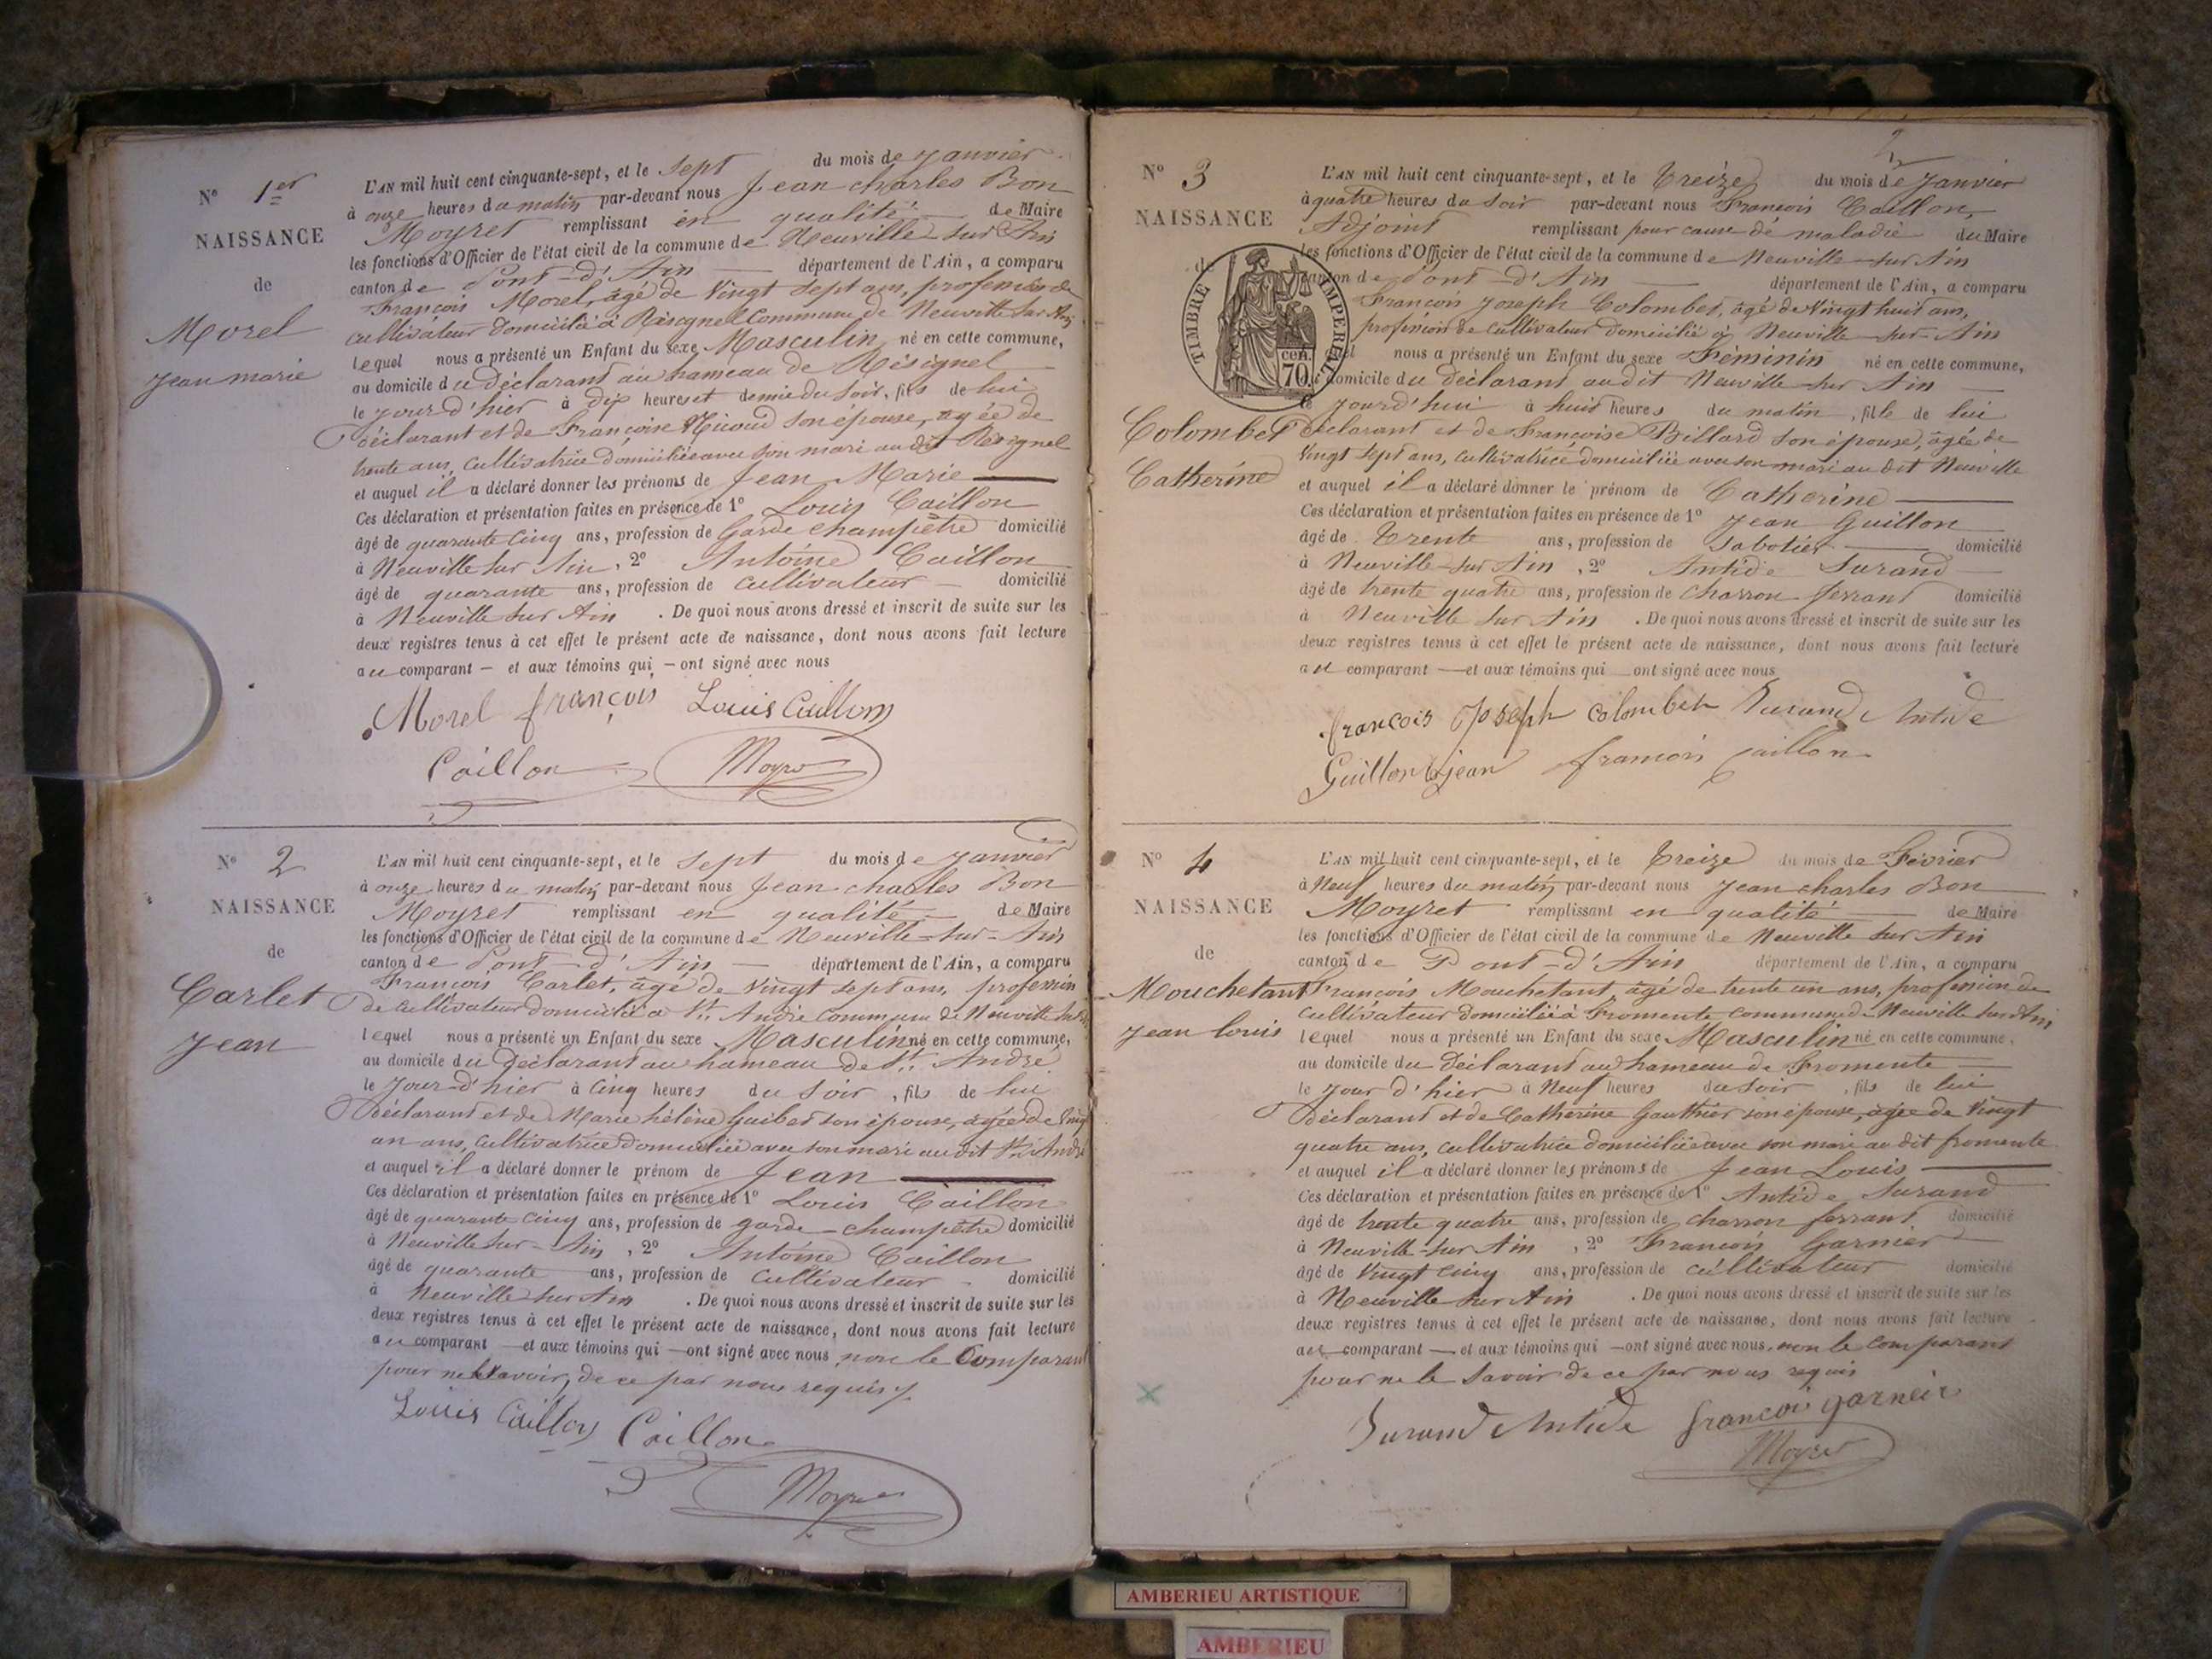 Nº 1er
NAISSANCE
de
Morel
Jean marie
L'AN mil huit cent cinquante-sept, et le Sept du mois de Janvier
à onze heures du matin par-devant nous Jean charles Bon
Moyret remplissant en qualité de Maire
les fonctions d'Officier de l'état civil de la commune de Neuville sur Ain
canton de Pont-d'Ain département de l'Ain, a comparu
François Morel, âgé de Vingt Sept ans, profession de
cultivateur domicilié à Commune de Neuville sur Ain
lequel nous a présenté un Enfant du sexe Masculin né en cette commune,
au domicile du Déclarant au hameau de Résignel
le jour d'hier à Dix heures et demie du Soir, fils de lui
Déclarant et de Françoise son épouse, agée de
trente ans, Cultivatrice domiciliée avec son mari au dit Résignel
et auquel il a déclaré donner les prénoms de Jean Marie
Ces déclaration et présentation faites en présence de 1º Louis Caillon
âgé de quarante Cinq ans, profession de Garde champêtre domicilié
à Neuville sur Ain, 2º Antoine Caillon
âgé de quarante ans, profession de Cultivateur domicilié
à Neuville sur Ain. De quoi nous avons dressé et inscrit de suite sur les
deux registres tenus à cet effet le présent acte de naissance, dont nous avons fait lecture
au comparant — et aux témoins qui — ont signé avec nous
Morel françois Louis Caillon
Caillon Moyret
Nº 2
NAISSANCE
de
Carlet
Jean
L'AN mil huit cent cinquante-sept, et le Sept du mois de Janvier
à onze heures du matin par-devant nous Jean charles Bon
Moyret remplissant en qualité de Maire
les fonctions d'Officier de l'état civil de la commune de Neuville-sur-Ain
canton de Pont-d'Ain département de l'Ain, a comparu
François Carlet, âgé de Vingt Sept ans, profession
de cultivateur domicilié à St. André Commune de Neuville sur
lequel nous a présenté un Enfant du sexe Masculin né en cette commune,
au domicile du Déclarant au hameau de St. André
le Jour-d'hier à Cinq heures du Soir, fils de lui
Déclarant et de Marie hélène Guibet son épouse, agée de Vingt
un ans, Cultivatrice domiciliée avec son mari au dit St. André
et auquel il a déclaré donner le prénom de Jean
Ces déclaration et présentation faites en présence de 1º Louis Caillon
âgé de quarante Cinq ans, profession de garde-champêtre domicilié
à Neuville sur-Ain, 2º Antoine Caillon
âgé de quarante ans, profession de Cultivateur domicilié
à Neuville sur Ain. De quoi nous avons dressé et inscrit de suite sur les
deux registres tenus à cet effet le présent acte de naissance, dont nous avons fait lecture
au comparant — et aux témoins qui — ont signé avec nous non le Comparant
pour ne le Savoir, de ce par nous requis
Louis Caillon Caillon
Moyret
2
Nº 3
NAISSANCE
de
TIMBRE IMPERIAL
cen.
70
Colombet
Catherine
L'AN mil huit cent cinquante-sept, et le Treize du mois de Janvier
à quatre heures du Soir par-devant nous François Caillon,
Adjoint remplissant pour cause de maladie du Maire
les fonctions d'Officier de l'état civil de la commune de Neuville-sur Ain
canton de Pont-d'Ain département de l'Ain, a comparu
François Joseph Colombet, âgé de Vingt huit ans,
profession de Cultivateur domicilié à Neuville sur-Ain
lequel nous a présenté un Enfant du sexe Féminin né en cette commune,
au domicile du Déclarant audit Neuville-sur Ain
le Jourd'hui à huit heures du matin, fille de lui
Déclarant et de Françoise Billard son épouse, âgée de
Vingt Sept ans, Cultivatrice domiciliée avec son mari au dit Neuville
et auquel il a déclaré donner le prénom de Catherine
Ces déclaration et présentation faites en présence de 1º Jean Guillon
âgé de Trente ans, profession de Sabotier domicilié
à Neuville-sur Ain, 2º Antide Durand
âgé de trente quatre ans, profession de Charron ferrant domicilié
à Neuville sur Ain. De quoi nous avons dressé et inscrit de suite sur les
deux registres tenus à cet effet le présent acte de naissance, dont nous avons fait lecture
au comparant — et aux témoins qui ont signé avec nous
francois Joseph Colombet Durand Antide
Guillon jean francois caillon
Nº 4
NAISSANCE
de
Mouchetant
Jean louis
L'AN mil huit cent cinquante-sept, et le Treize du mois de Février
à Neuf heures du matin par-devant nous Jean charles Bon
Moyret remplissant en qualité de Maire
les fonctions d'Officier de l'état civil de la commune de Neuville sur Ain
canton de Pont-d'Ain département de l'Ain, a comparu
François Mouchetant, âgé de trente un ans, profession de
Cultivateur domicilié à Fromente commune de Neuville sur Ain
lequel nous a présenté un Enfant du sexe Masculin né en cette commune,
au domicile du Déclarant au hameau de Fromente
le Jour d'hier à Neuf heures du Soir, fils de lui
Déclarant et de Catherine Gauthier son épouse, agée de Vingt
quatre ans, cultivatrice domiciliée avec son mari au dit fromente
et auquel il a déclaré donner les prénoms de Jean Louis
Ces déclaration et présentation faites en présence de 1º Antide Durand
âgé de trente quatre ans, profession de charron ferrant domicilié
à Neuville-sur Ain, 2º François Garnier
âgé de Vingt Cinq ans, profession de cultivateur domicilié
à Neuville sur Ain. De quoi nous avons dressé et inscrit de suite sur les
deux registres tenus à cet effet le présent acte de naissance, dont nous avons fait lecture
au comparant — et aux témoins qui — ont signé avec nous, non le comparant
pour ne le Savoir de ce par nous requis
Durand Antide francoi garneir
Moyret
AMBERIEU ARTISTIQUE
AMBERIEU